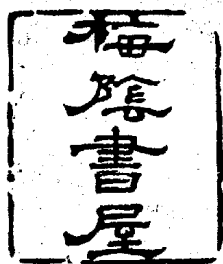 梅陰書屋